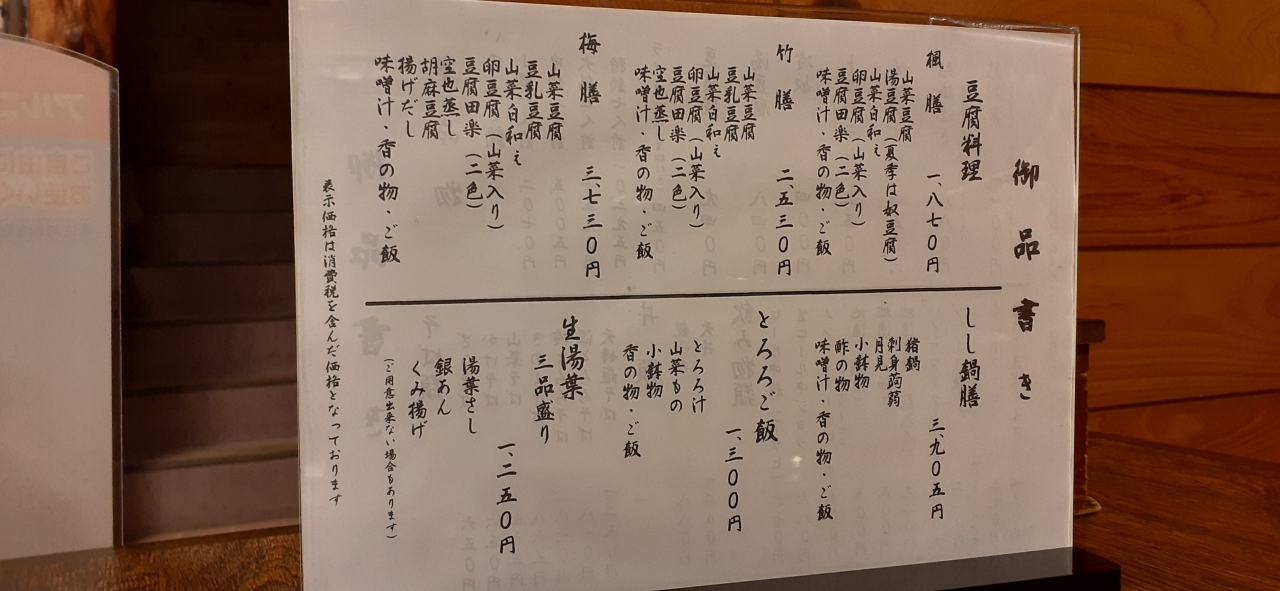 御品書き
豆腐料理
楓膳 一、八七〇円
山菜豆腐
湯豆腐(夏季は奴豆腐)
山菜白和え
卵豆腐(山菜入り)
豆腐田楽(二色)
味噌汁・香の物・ご飯
竹膳 二、五三〇円
山菜豆腐
豆乳豆腐
山菜白和え
卵豆腐(山菜入り)
豆腐田楽(二色)
空也蒸し
味噌汁・香の物・ご飯
梅膳 三、七三〇円
山菜豆腐
豆乳豆腐
山菜白和え
卵豆腐(山菜入り)
豆腐田楽(二色)
空也蒸し
胡麻豆腐
揚げだし
味噌汁・香の物・ご飯
しし鍋膳 三、九〇五円
猪鍋
刺身蒟蒻
月見
小鉢物
酢の物
味噌汁・香の物・ご飯
とろろご飯 一、三〇〇円
とろろ汁
山菜もの
小鉢物
香の物・ご飯
生湯葉
三品盛り 一、二五〇円
湯葉さし
銀あん
くみ揚げ
(ご用意出来ない場合もあります)
表示価格は消費税を含んだ価格となっております